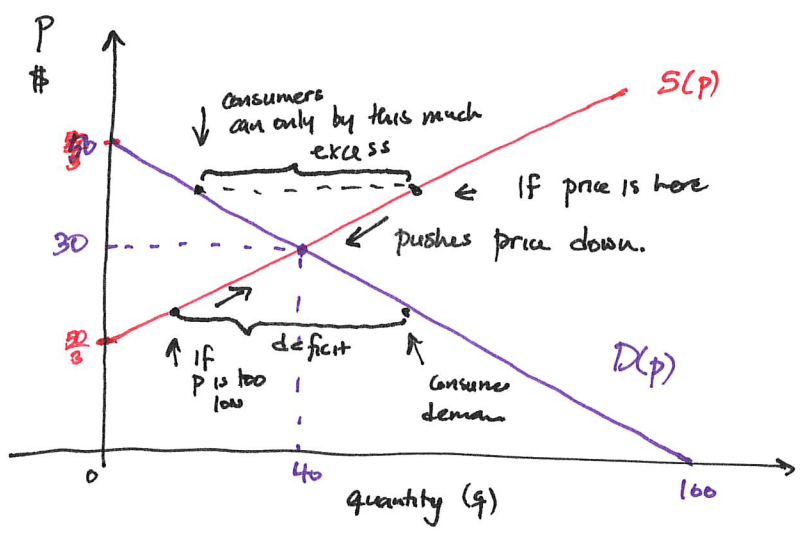 P
$
S(p)
consumers
can only by this much
excess
50
if price is here
pushes price down.
30
deficit
50
3
if
p is too
low
D(p)
consume
deman
0
40
100
quantity (q)